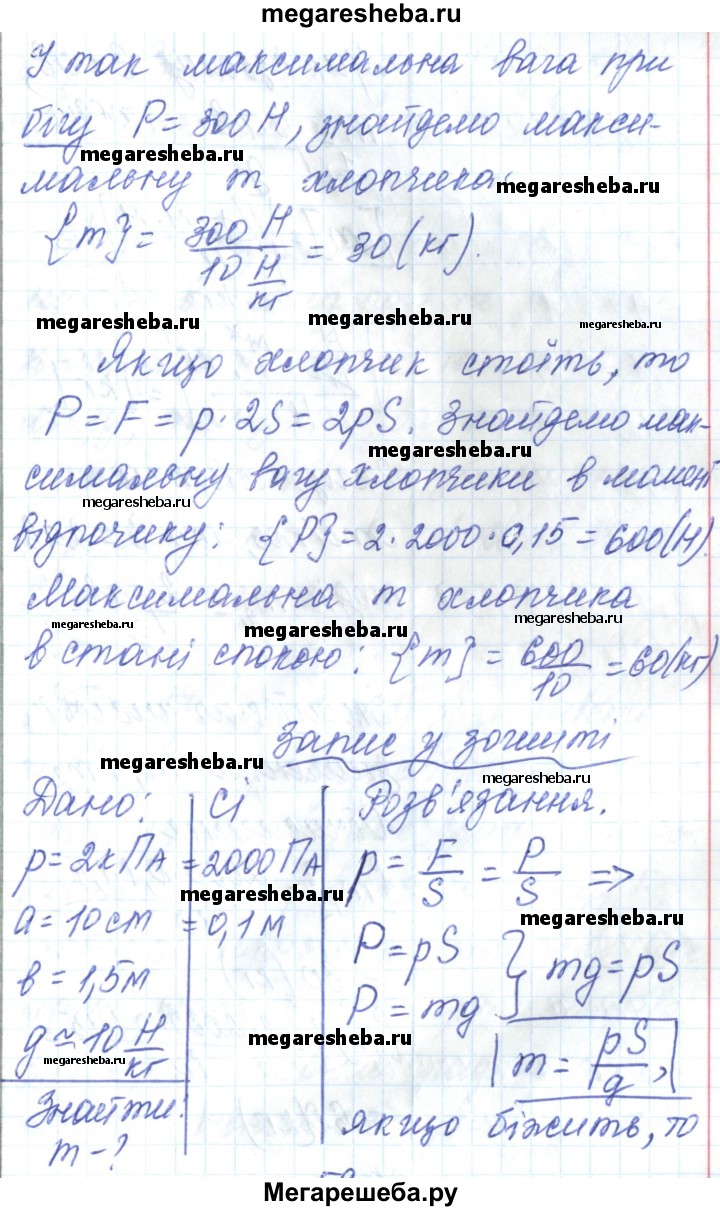 megaresheba.ru
І так максимальна вага при
бігу P = 300 Н, знайдемо макси-
megaresheba.ru
мальну m хлопчика:
megaresheba.ru
{m} = 300 Н / 10 Н/кг = 30 (кг).
megaresheba.ru
megaresheba.ru
megaresheba.ru
Якщо хлопчик стоїть, то
P = F = p · 2S = 2pS. Знайдемо мак-
megaresheba.ru
симальну вагу хлопчики в момент
megaresheba.ru
відпочику: {P} = 2 · 2000 · 0,15 = 600 (Н).
Максимальна m хлопчика
megaresheba.ru
megaresheba.ru
megaresheba.ru
в стані спокою: {m} = 600/10 = 60 (кг)
Запис у зошиті
megaresheba.ru
megaresheba.ru
Дано:
p = 2 кПа
a = 10 см
в = 1,5 м
g ≈ 10 Н/кг
megaresheba.ru
Знайти:
m - ?
Сі
= 2000 Па
megaresheba.ru
= 0,1 м
Розв'язання.
p = F/S = P/S =>
megaresheba.ru
P = pS
P = mg } mg = pS
megaresheba.ru
m = pS/g,
якщо біжить, то
Мегарешеба.ру